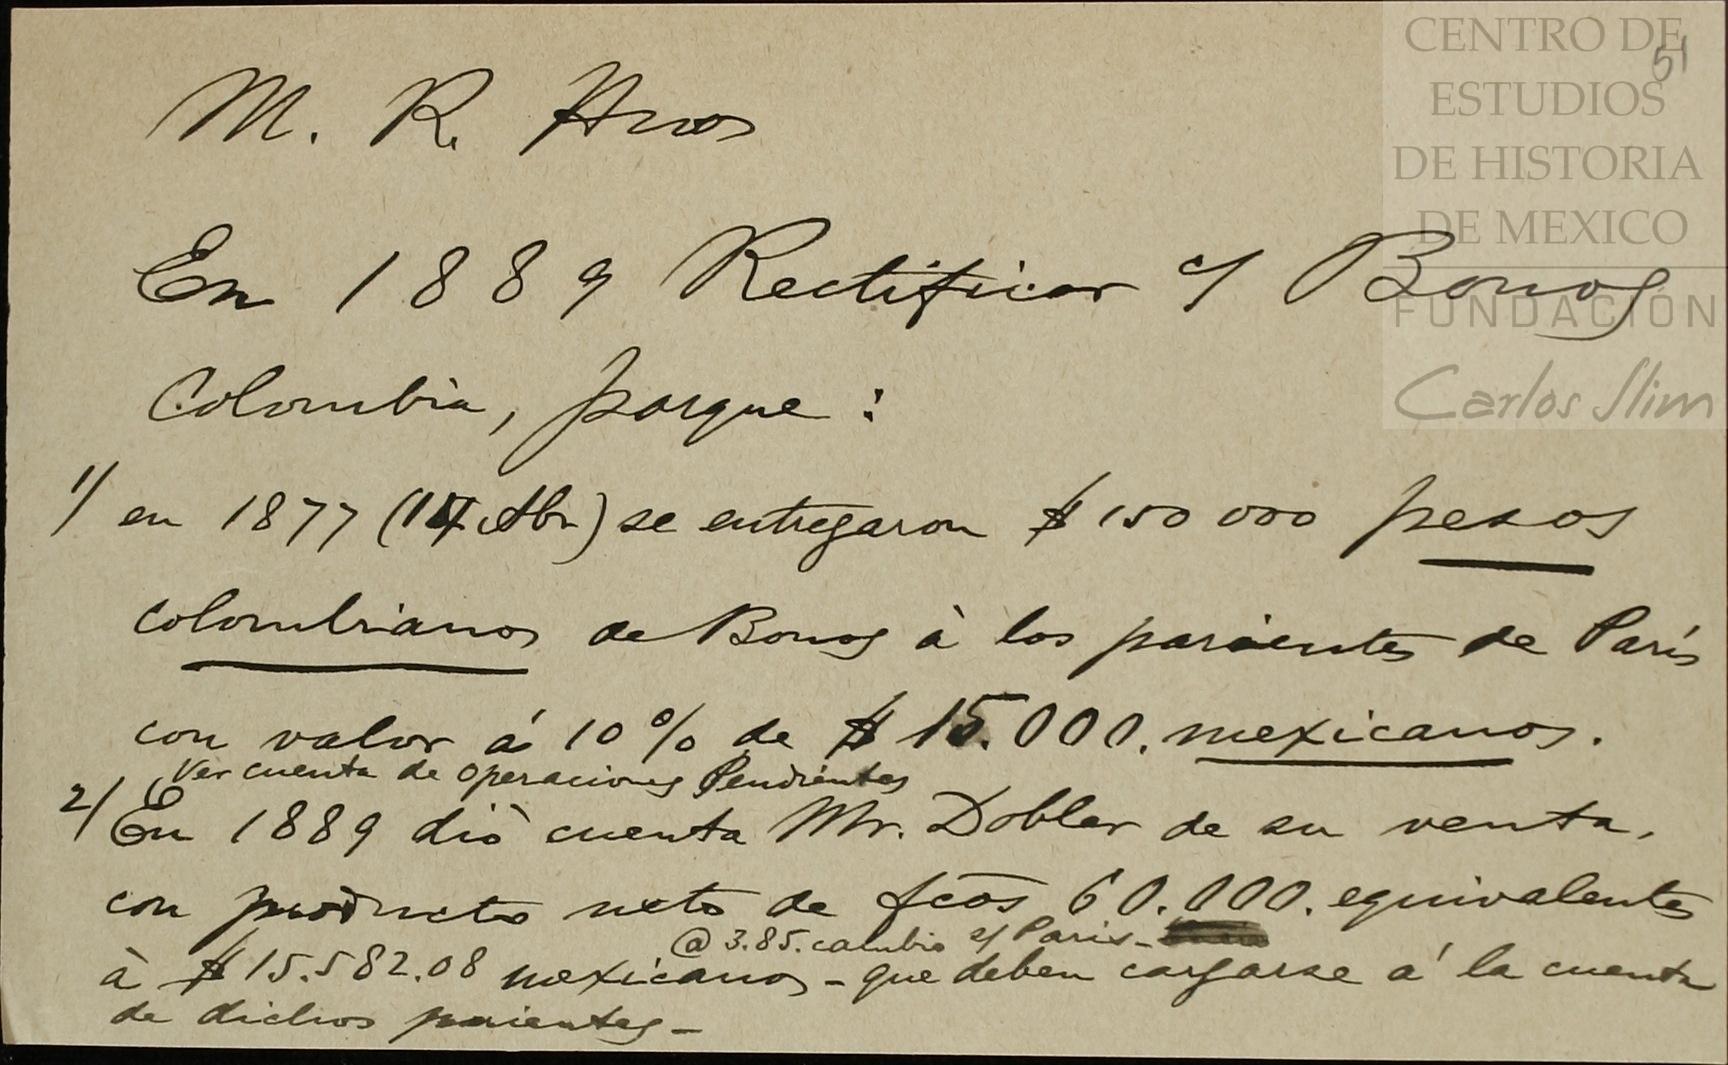 51
M. R. Hnos
En 1889 Rectificar c/ Bonos
Colombia, porque:
1/ en 1877 (14 Abr) se entregaron $150000 pesos
colombianos de Bonos à los parientes de Paris
con valor á 10% de $15.000. mexicanos.
Ver cuenta de operaciones Pendientes
2/ En 1889 diò cuenta Mr. Dobler de su venta,
con producto neto de fcos 60.000. equivalentes
@ 3.85. cambio s/ Paris -
à $15.582.08 mexicanos - que deben cargarse a' la cuenta
de dichos parientes -
CENTRO DE
ESTUDIOS
DE HISTORIA
DE MEXICO
FUNDACIÓN
Carlos Slim